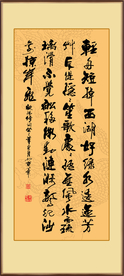 輕舟短棹西湖好綠水逶迤芳
艸長堤隱隱笙歌處處隨無風水面琉
璃滑不覺船移微動漣漪驚起沙
禽掠岸飛